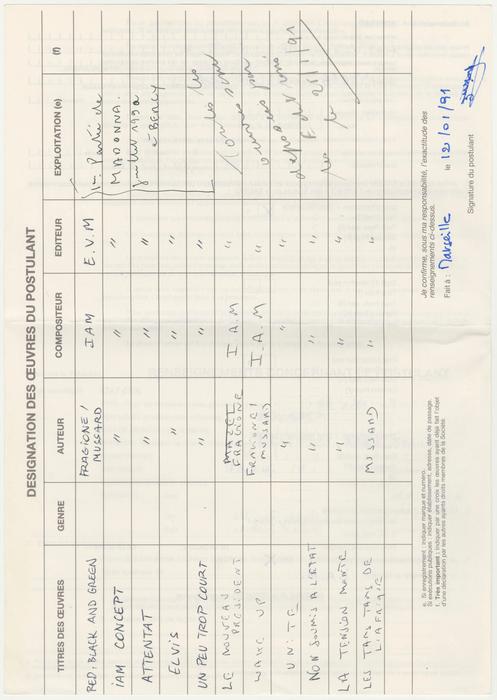 DESIGNATION DES ŒUVRES DU POSTULANT
TITRES DES ŒUVRES GENRE AUTEUR COMPOSITEUR EDITEUR EXPLOITATION (e) (f)
RED, BLACK AND GREEN FRAGIONE / MUSSARD IAM E.V.M 1re Partie de
IAM CONCEPT " " " MADONNA.
ATTENTAT " " " Juillet 1990
ELVIS " " " à BERCY
UN PEU TROP COURT " " "
LE NOUVEAU PRESIDENT MALLET FRAGIONE I A.M "
WAKE UP FRAGIONE / MUSSARD I.A.M "
UNITE " " "
NON SOUMIS A L'ETAT " " "
LA TENSION MONTE " " "
LES TAMS TAMS DE L'AFRIQUE MUSSARD " "
e. Si enregistrement : indiquer marque et numéro.
Si exécutions publiques : indiquer établissement, adresse, date de passage.
f. Très important : indiquer par une croix les œuvres ayant déjà fait l'objet
d'une déclaration par les autres ayants droits membres de la Société.
Je confirme, sous ma responsabilité, l'exactitude des
renseignements ci-dessus.
Fait à : Marseille le 12/01/91
Signature du postulant